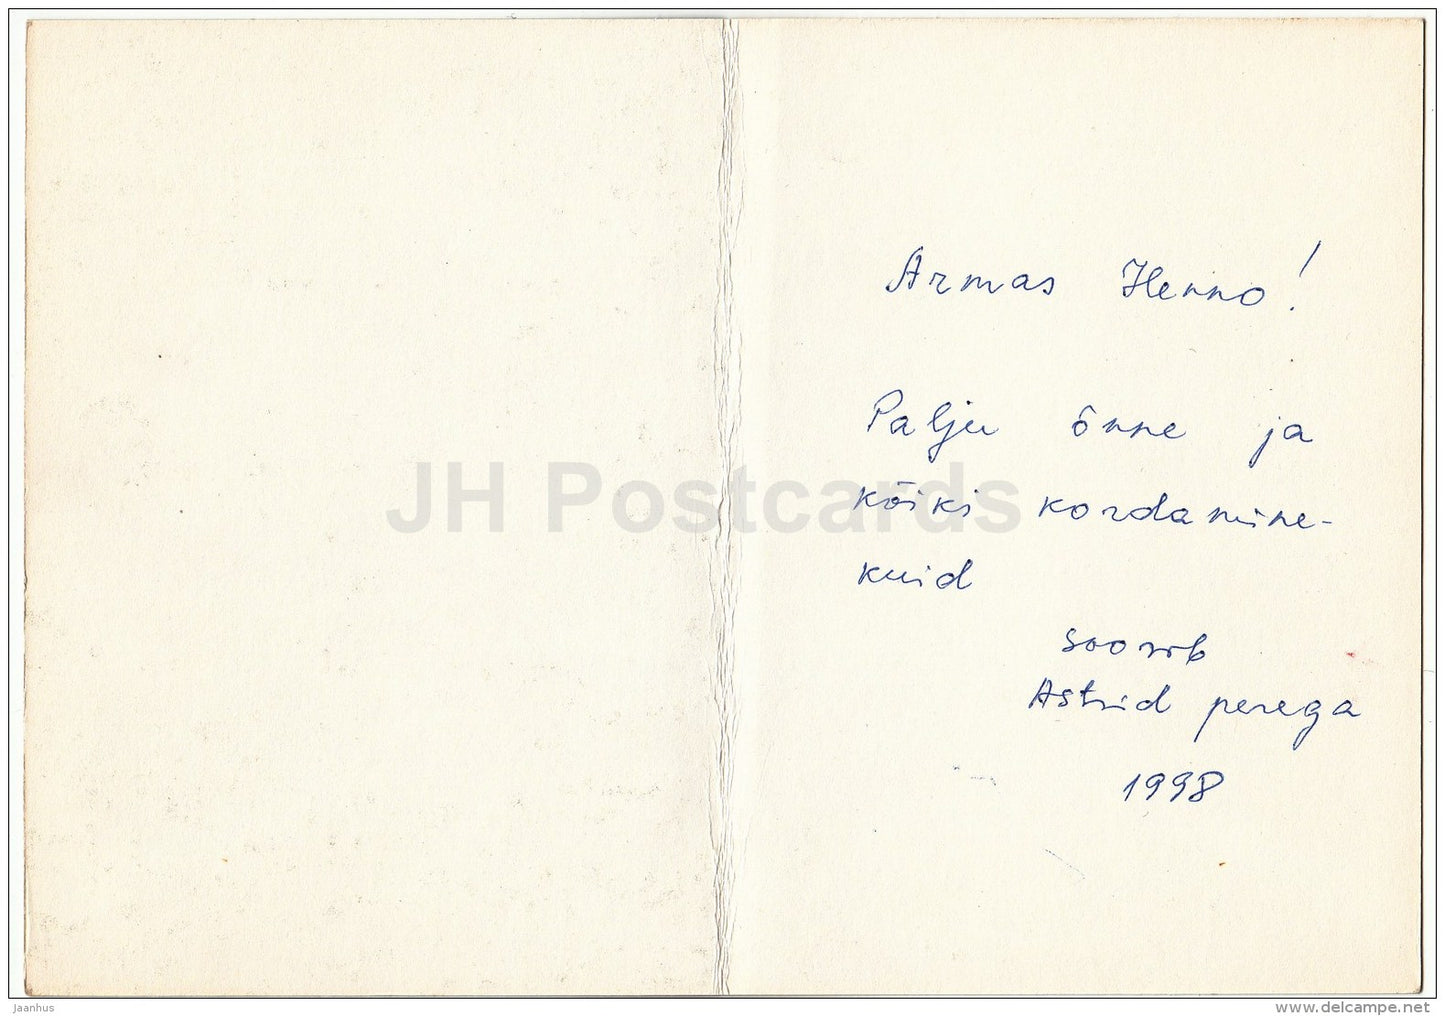 Armas Henno!
Palju õnne ja
kõiki kordamine-
kuid
soovib
Astrid perega
1998
JH Postcards
jaanhus
www.delcampe.net